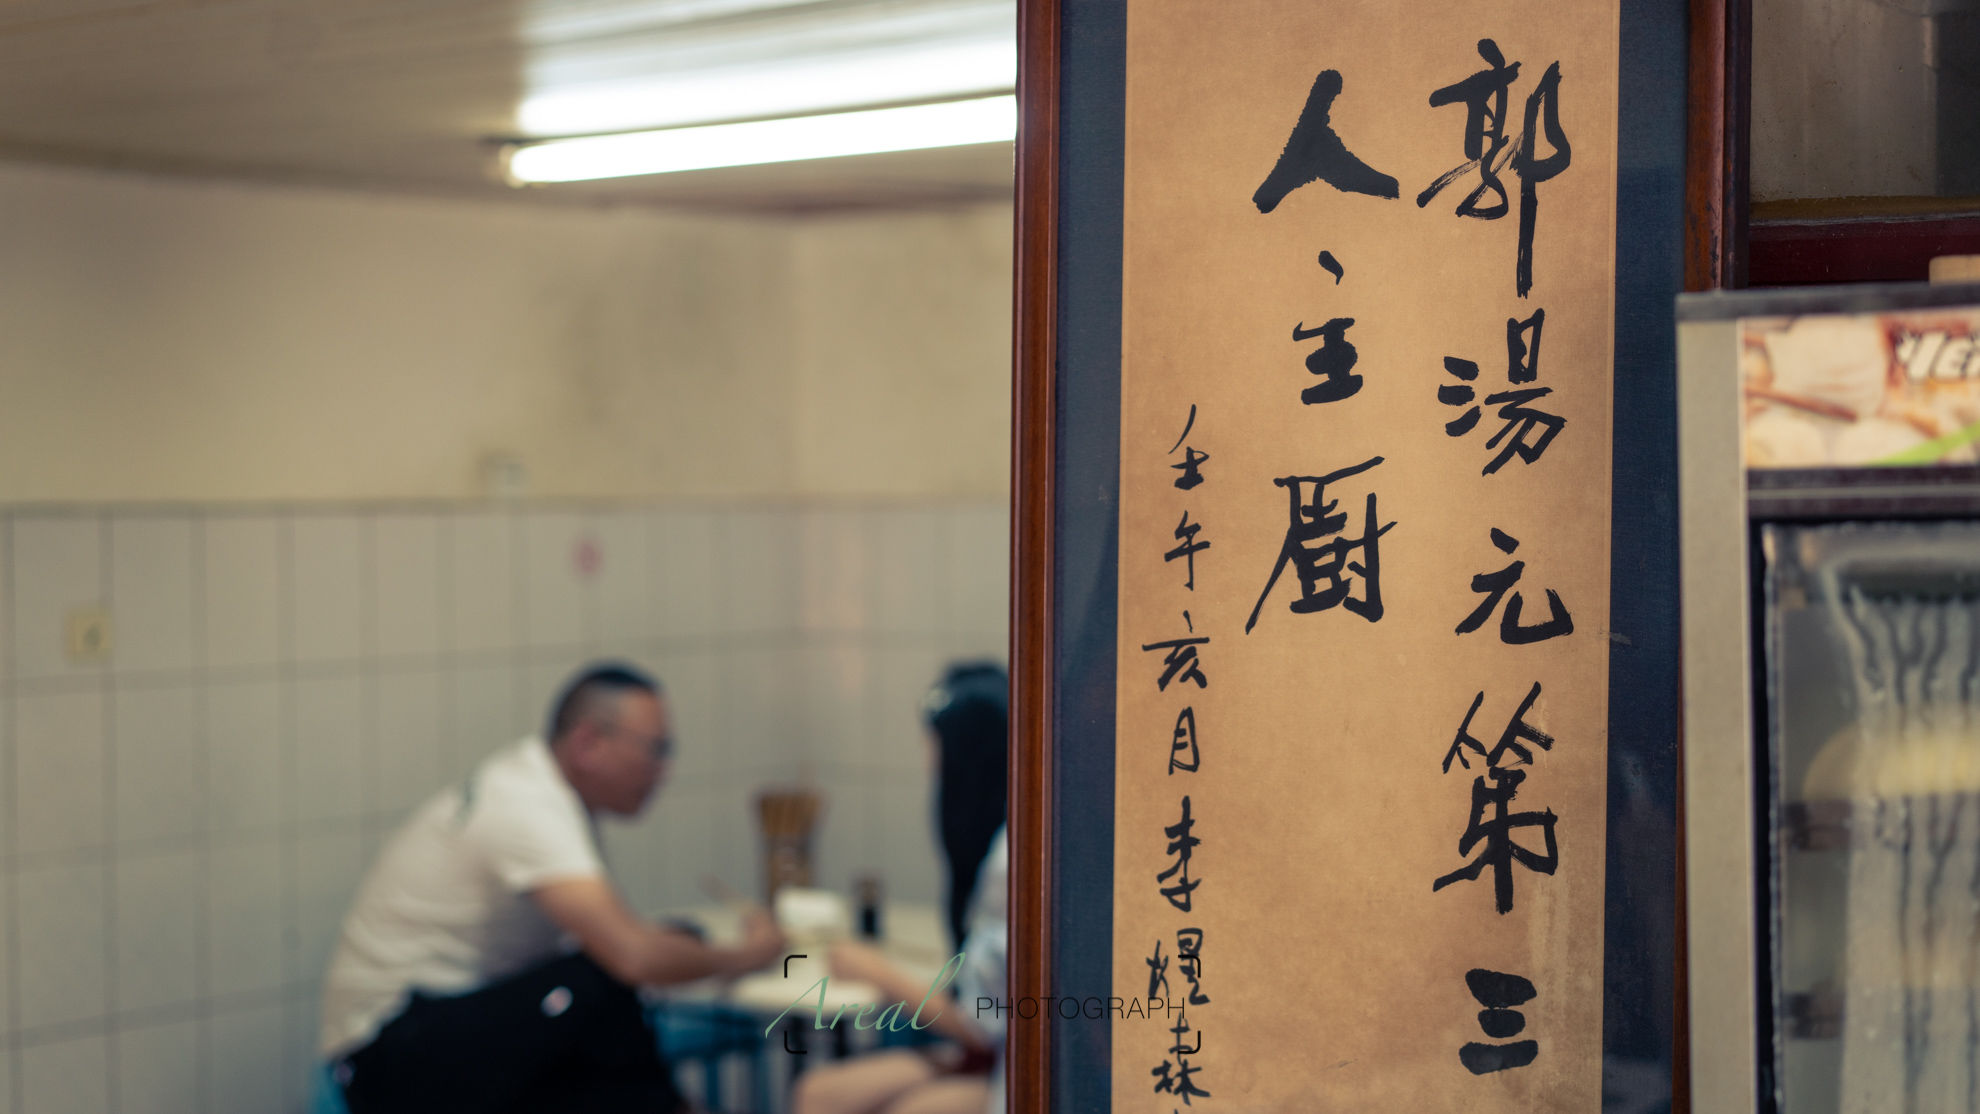 郭湯元第三
人主厨
壬午亥月李耀林
Areal PHOTOGRAPH